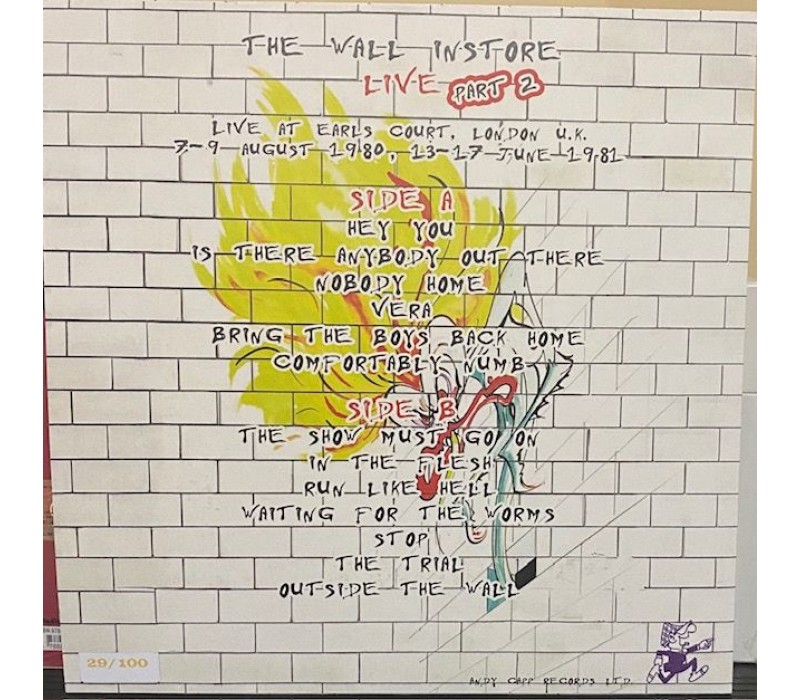 THE WALL INSTORE
LIVE PART 2
LIVE AT EARLS COURT, LONDON U.K.
7-9 AUGUST 1980, 13-17 JUNE 1981
SIDE A
HEY YOU
IS THERE ANYBODY OUT THERE
NOBODY HOME
VERA
BRING THE BOYS BACK HOME
COMFORTABLY NUMB
SIDE B
THE SHOW MUST GO ON
IN THE FLESH
RUN LIKE HELL
WAITING FOR THE WORMS
STOP
THE TRIAL
OUTSIDE THE WALL
29/100
ANDY CAPP RECORDS LTD.